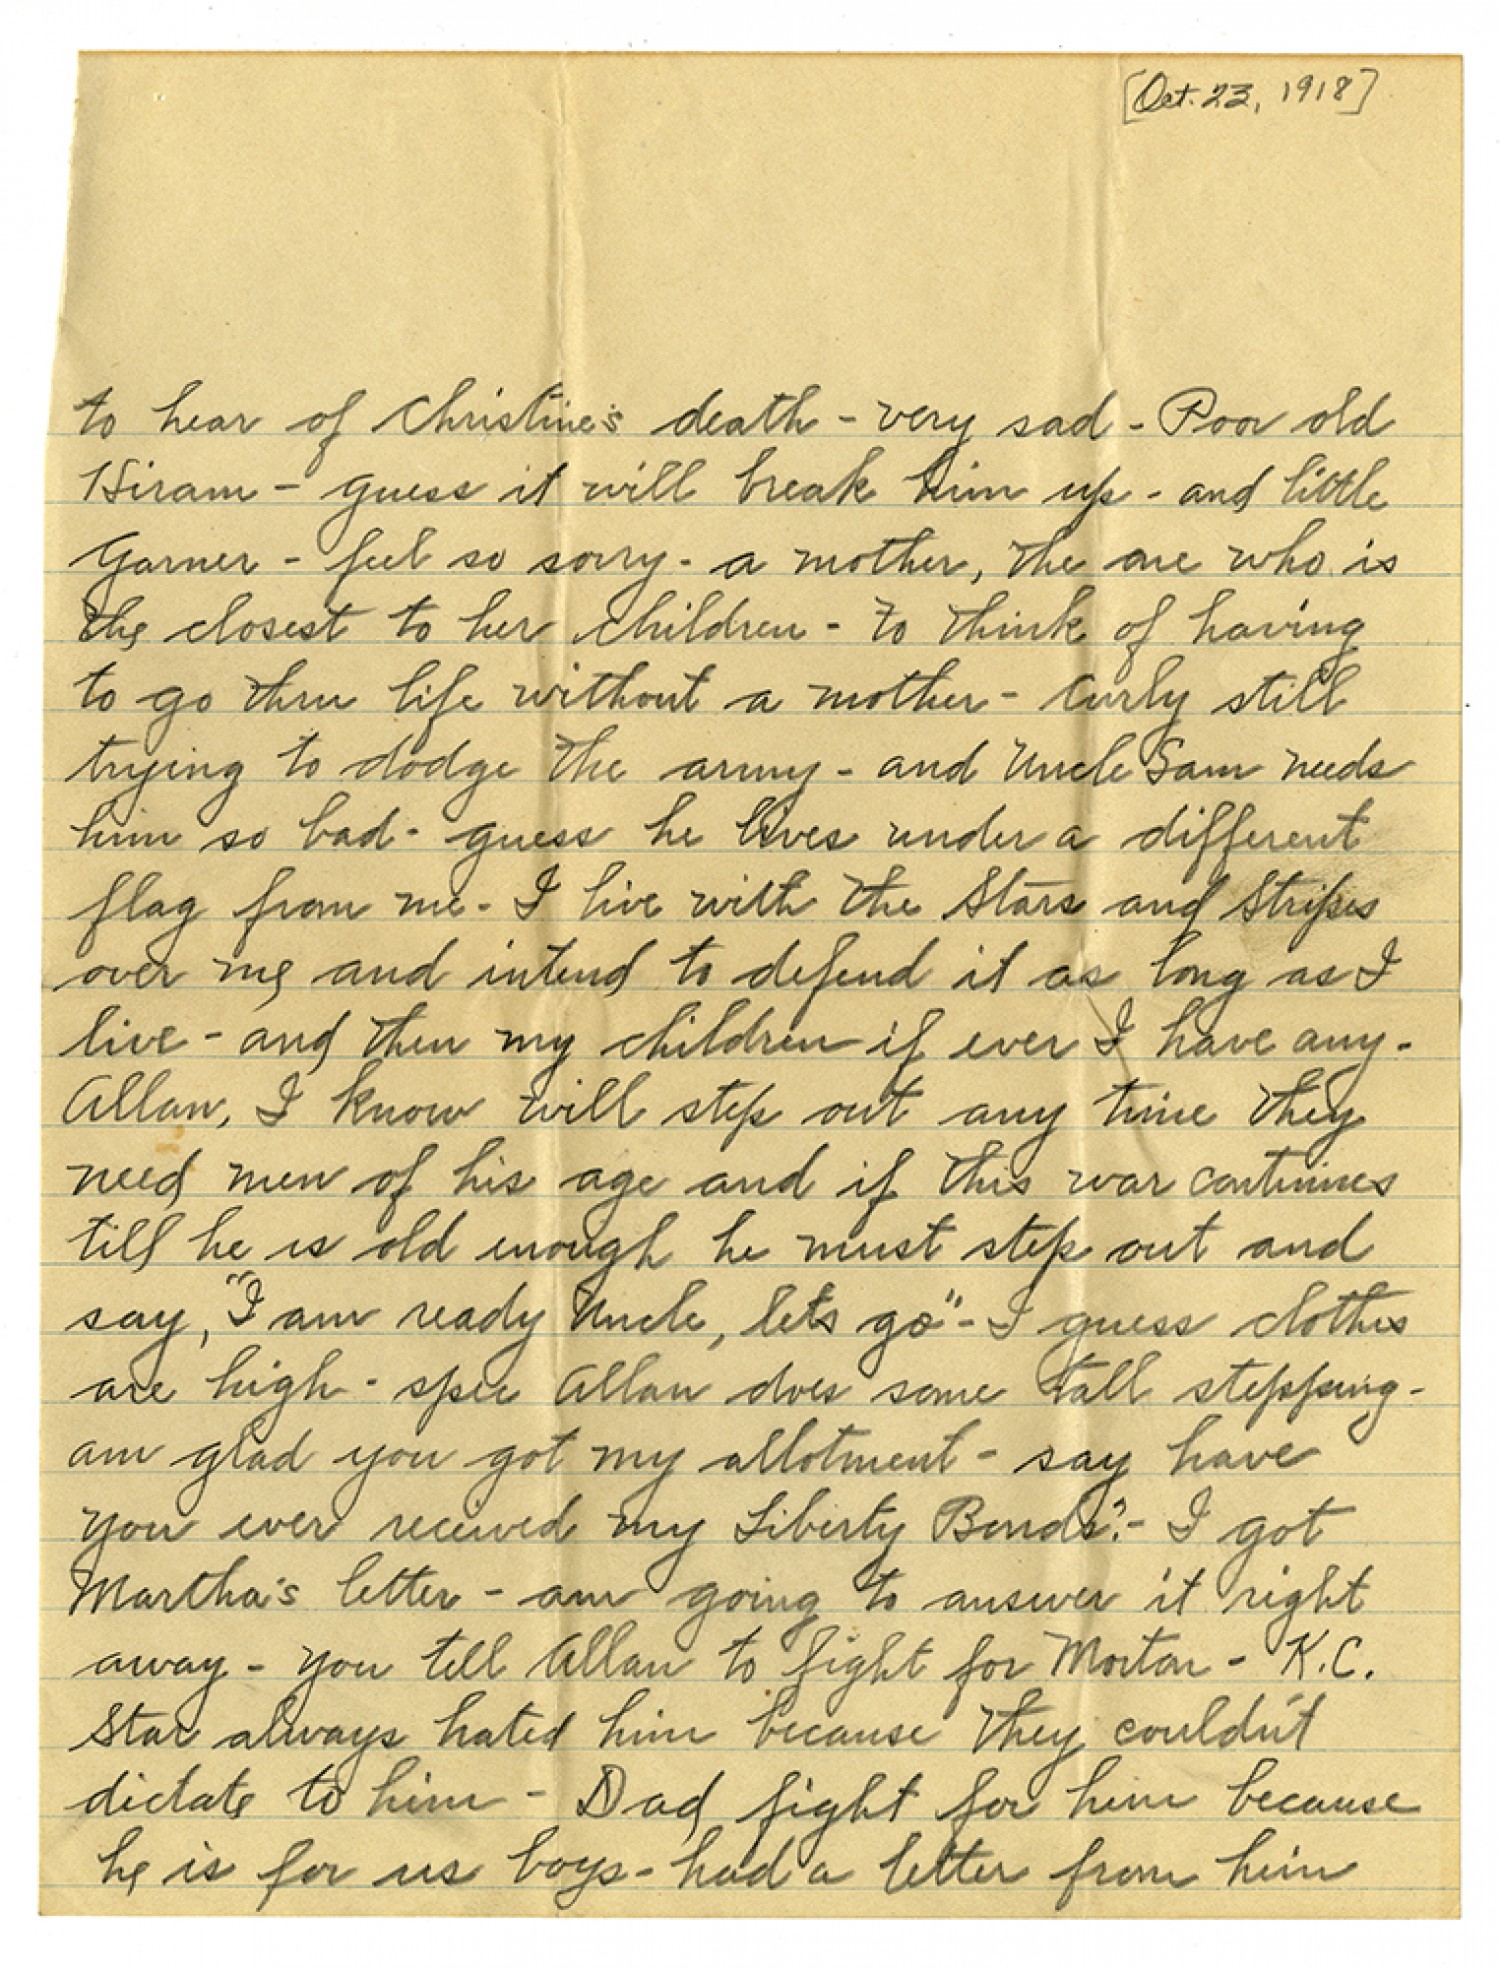 [Oct. 23, 1918]
to hear of Christine's death - very sad - Poor old
Hiram - guess it will break him up - and little
Garner - feel so sorry - a mother, the one who is
the closest to her children - to think of having
to go thru life without a mother - Curly still
trying to dodge the army - and Uncle Sam needs
him so bad - guess he lives under a different
flag from me - I live with the Stars and Stripes
over me and intend to defend it as long as I
live - and then my children if ever I have any -
Allan, I know will step out any time they
need men of his age and if this war continues
till he is old enough he must step out and
say, "I am ready Uncle, lets go" - I guess clothes
are high - spec Allan does some tall stepping -
am glad you got my allotment - say have
you ever received my Liberty Bonds? - I got
Martha's letter - am going to answer it right
away - you tell Allan to fight for Morton - K.C.
Star always hated him because they couldn't
dictate to him - Dad fight for him because
he is for us boys - had a letter from him